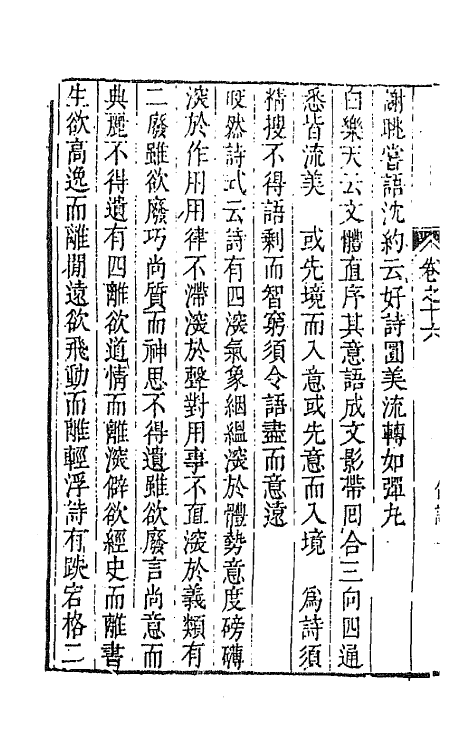 卷之十六
謝眺嘗語沈約云好詩圓美流轉如彈丸
白樂天云文體直序其意語成文影帶囘合三向四通
悉皆流美　或先境而入意或先意而入境　爲詩須
精搜不得語剩而智窮須令語盡而意遠
皎然詩式云詩有四深氣象絪縕深於體勢意度磅礴
深於作用用律不滯深於聲對用事不直深於義類有
二廢雖欲廢巧尚質而神思不得遺雖欲廢言尚意而
典麗不得遺有四離欲道情而離深僻欲經史而離書
生欲高逸而離閒遠欲飛動而離輕浮詩有跌宕格二